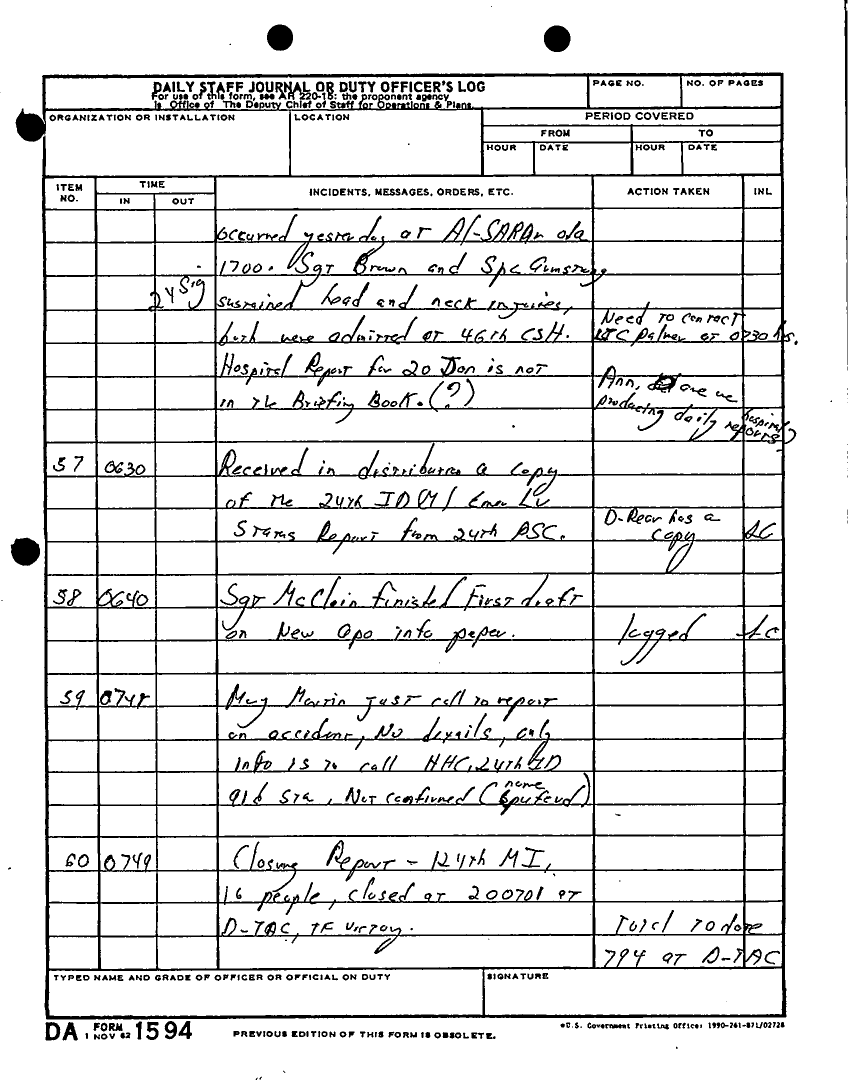 DAILY STAFF JOURNAL OR DUTY OFFICER'S LOG
For use of this form, see AR 220-15; the proponent agency
is Office of The Deputy Chief of Staff for Operations & Plans.
PAGE NO.
NO. OF PAGES
ORGANIZATION OR INSTALLATION
LOCATION
PERIOD COVERED
FROM
TO
HOUR
DATE
HOUR
DATE
ITEM NO.
TIME
IN
OUT
INCIDENTS, MESSAGES, ORDERS, ETC.
ACTION TAKEN
INL
occurred yesterday at Al-SARAn o/a
1700. Sgt Brown and Spc Armstrong
24 Sig
sustained head and neck injuries,
both were admitted at 46th CSH.
Need to contact
LTC Palmer at 0730 hrs.
Hospital Report for 20 Jan is not
in the Briefing Book. (?)
Ann, are we
producing daily hospital
reports?
57 0630 Received in distribution a copy
of the 24th ID(M)
Status Report from 24th PSC.
D-Rear has a
copy
58 0640 Sgt McClain finished First draft
on New Apo info paper.
logged
59 0745 just call to report
an accident, No details, only
info is to call HHC, 24th ID
Not confirmed (name
60 0749 Closing Report - 124th MI,
16 people, closed at 200701 at
D-TAC, TF Victory.
Total to date
794 at D-TAC
TYPED NAME AND GRADE OF OFFICER OR OFFICIAL ON DUTY
SIGNATURE
DA FORM 1 NOV 62 1594
PREVIOUS EDITION OF THIS FORM IS OBSOLETE.
*U.S. Government Printing Office: 1990-261-871/02728